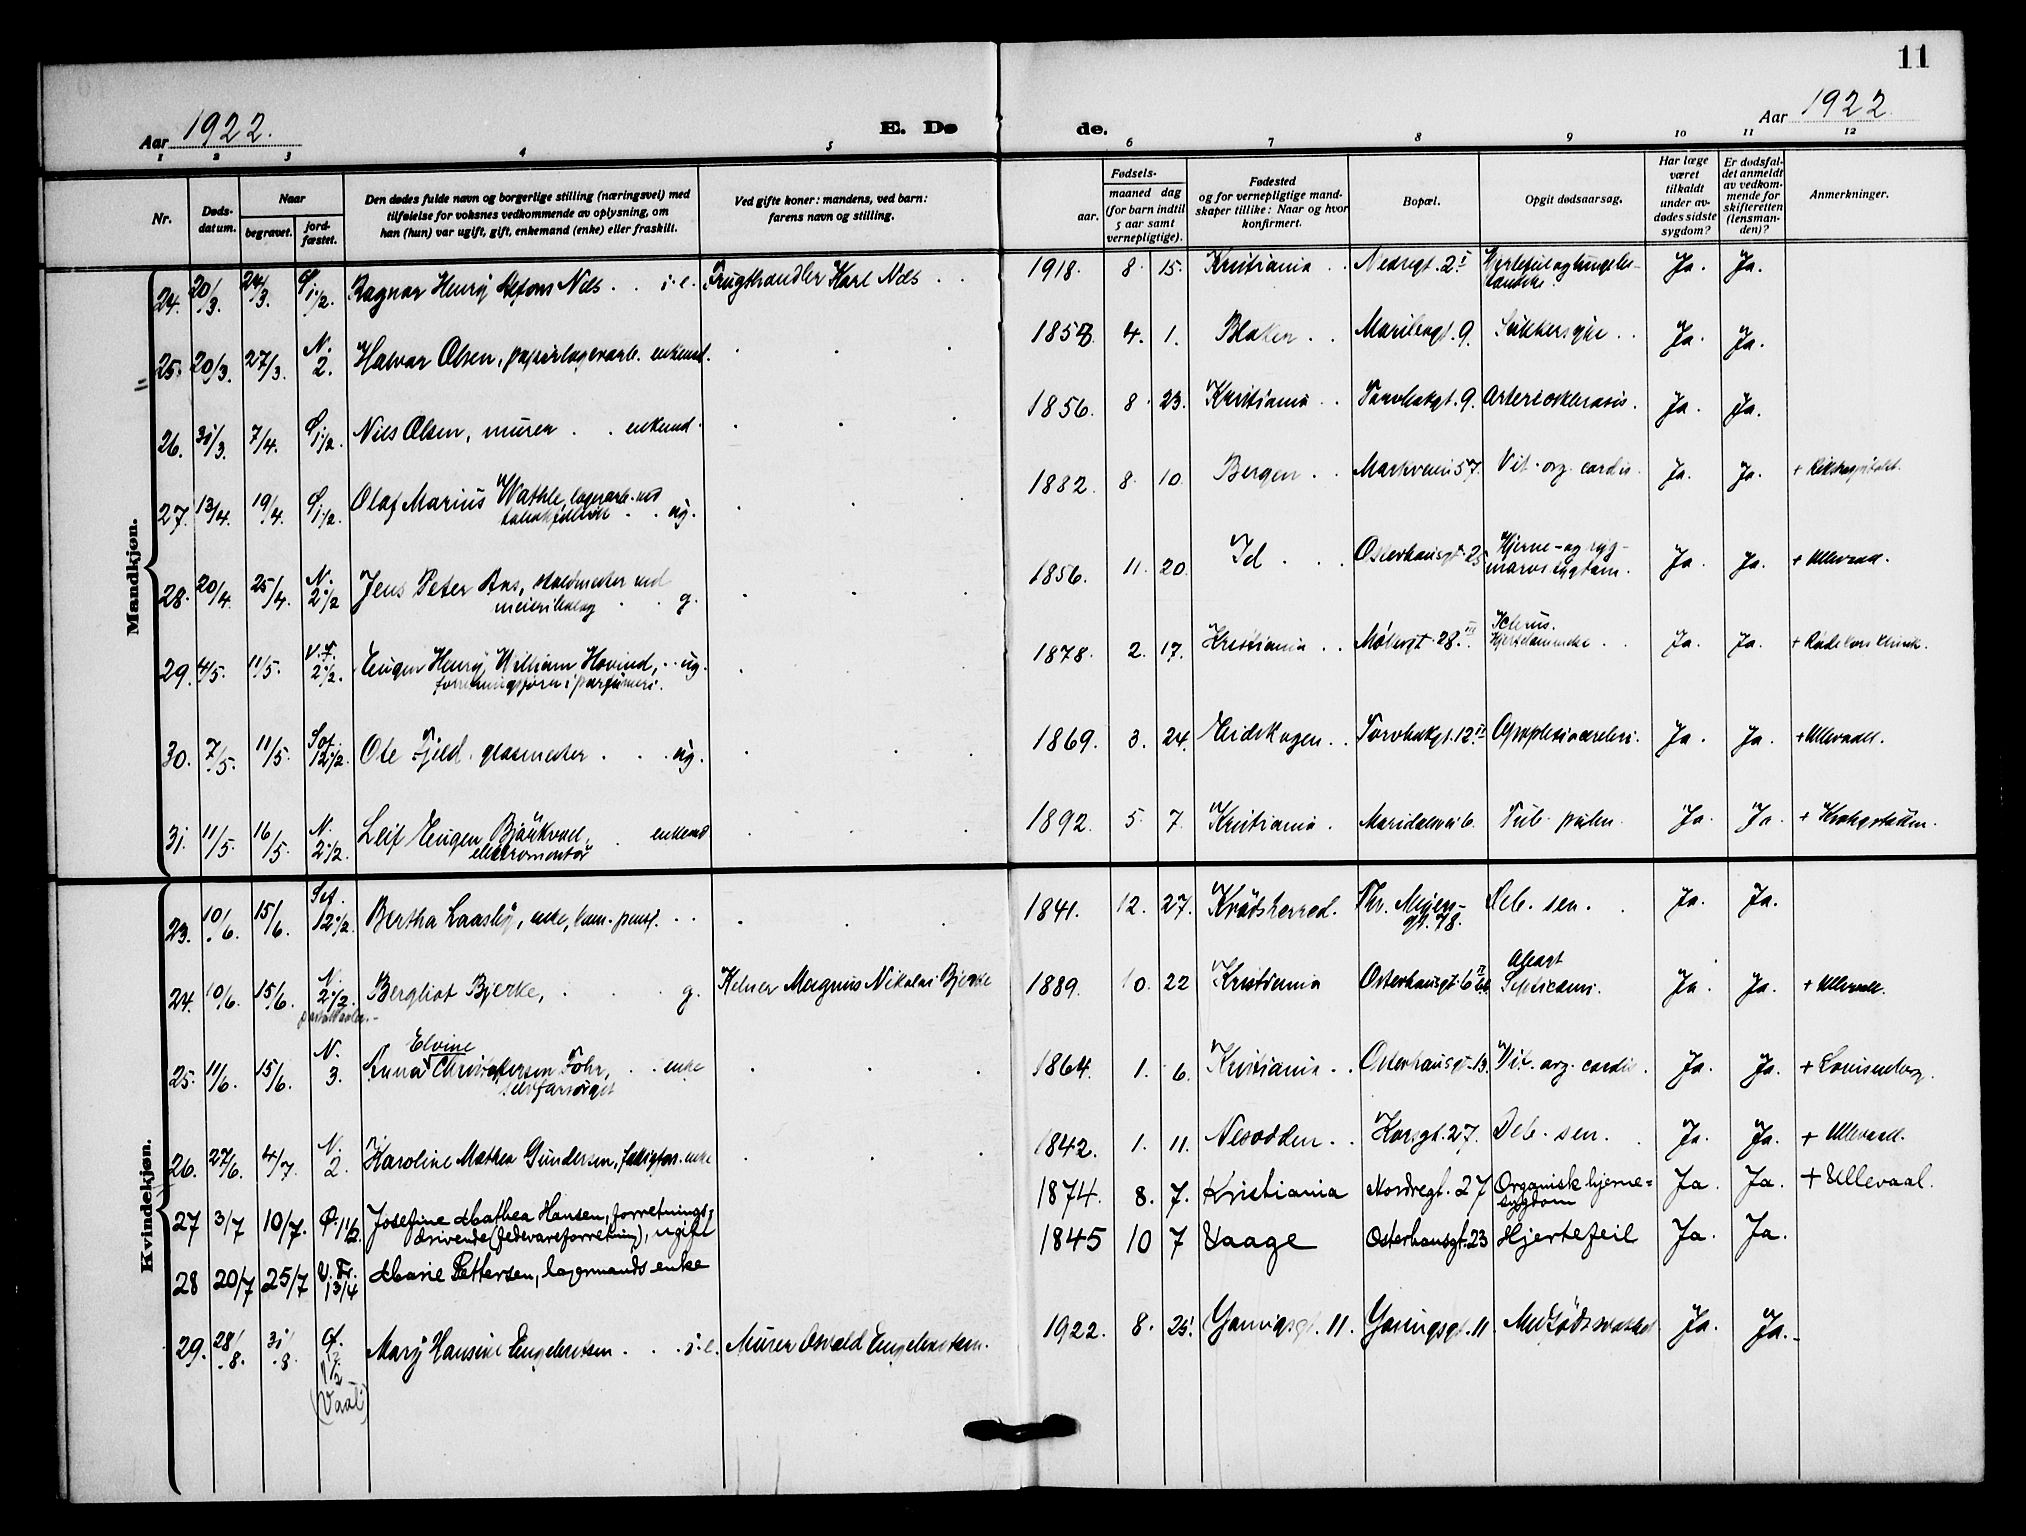 11
Aar 1922.
E. Dø
de.
Aar 1922
1 2 3 4 5 6 7 8 9 10 11 12
Nr.
Døds-
datum.
Naar
begravet.
jord-
fæstet.
Den dødes fulde navn og borgerlige stilling (næringsvei) med
tilføielse for voksnes vedkommende av oplysning, om
han (hun) var ugift, gift, enkemand (enke) eller fraskilt.
Ved gifte koner: mandens, ved barn:
farens navn og stilling.
Fødsels-
aar.
maaned dag
(for barn indtil
5 aar samt
vernepligtige).
Fødested
og for vernepligtige mand-
skaper tillike: Naar og hvor
konfirmert.
Bopæl.
Opgit dødsaarsag.
Har læge
været
tilkaldt
under av-
dødes sidste
sygdom?
Er dødsfal-
det anmeldt
av vedkom-
mende for
skifteretten
(lensman-
den)?
Anmerkninger.
Mandkjøn.
24. 20/3. 24/3. 1 1/2. Ragnar Henry Nils i.l. Frugthandler Karl Nils 1918. 8. 15. Kristiania Nedregt. 2 I Ja. Ja.
25. 20/3. 27/3. N. 2. Halvar Olsen, papirlagerarb. enkemd. 4. 1. Blaker Maribogt. 9. Sukkersyke Ja. Ja.
26. 31/3. 7/4. 1 1/2. Nils Olsen, murer enkemd. 1856. 8. 23. Kristiania Torvbakgt. 9. Arteriosklerosis. Ja. Ja.
27. 13/4. 19/4. 1 1/2. Olaf Marius Wathle, lagerarb. ved
ug. 1882. 8. 10 Bergen Markveien 57. Vit. org. cordis. Ja. Ja. + Rikshospitalet.
28. 20/4. 25/4. N. 2 1/2 Jens Peter Aas, staldmester ved
meieribolag g. 1856. 11. 20. Id Osterhausgt. 25 Hjerne- og ryg-
marvssygdom. Ja. Ja. + Ullevaal.
29. 4/5. 11/5. V.F. 2 1/2. Eugen Henry William Hovind, ug.
forretningsfører i parfumeri. 1878. 2. 17. Kristiania Møllergt. 28 III Icterus.
Ja. Ja. + Rode kors klinik.
30. 7/5. 11/5. Sof. 12 1/2. Ole Fjeld. glasmester ug. 1869. 3. 24. Eidskogen Torvbakgt. 12 II Apoplexia cerebri. Ja. Ja. + Ullevaal.
31. 11/5. 16/5. N. 2 1/2. Leif Eugen
elektromontør enkemd 1892. 5. 7. Kristiania Maridalsvei 6. Tub. pulm. Ja. Ja. + Krohgstøtten.
Kvindekjøn.
23. 10/6. 15/6. Sof. 12 1/2. Bertha Laasby, enke, kom. pensj. 1841. 12. 27. Krødsherred. Thv. Meyers-
gt. 78. Deb. sen. Ja. Ja.
24. 10/6. 15/6. N. 2 1/2. Bergliot Bjerke, g. Kelner Magnus Nikolai Bjerke 1889. 10. 22 Kristiania Osterhausgt. 6 Abort
Septicæmi. Ja. Ja. + Ullevaal.
25. 11/6. 15/6. N. 3. Anna Elvine Christophersen Fohr, enke
selvforsørget 1864. 1. 6. Kristiania Osterhausgt. 13. Vit. org. cordis. Ja. Ja. + Louisenborg.
26. 27/6. 4/7. N. 2. Karoline Mathea Gundersen, enke 1842. 1. 11. Nesodden Korsgt. 27. Deb. sen. Ja. Ja. + Ullevaal.
27 3/7 10/7. Ø. 1 1/2. Josefine Mathea Hansen, forretnings-
drivende (fedevareforretning), ugift 1874. 8. 7. Kristiania Nordregt. 27 Organisk hjerne=
sygdom Ja. Ja. + Ullevaal.
28 20/7 25/7 V. Fr. 13/4 Marie Pettersen, lagermands enke 1845 10 7 Vaage Osterhausgt. 23 Hjertefeil Ja. Ja.
29. 28/8. 31/8 1 1/2 (Vaal) Mary Hansine Engebretsen i.l. Murer Osvald Engebretsen. 1922. 8. 25. 11. 11 Ja. Ja.